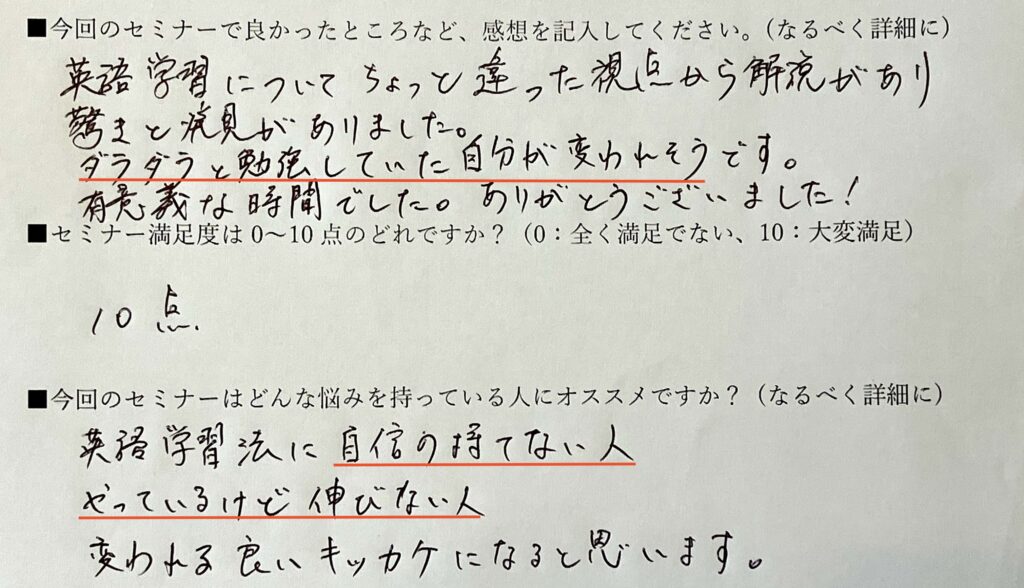 ■今回のセミナーで良かったところなど、感想を記入してください。（なるべく詳細に）
英語学習についてちょっと違った視点から解説があり
驚きと発見がありました。
ダラダラと勉強していた自分が変われそうです。
有意義な時間でした。ありがとうございました！
■セミナー満足度は0～10点のどれですか？（0：全く満足でない、10：大変満足）
10点.
■今回のセミナーはどんな悩みを持っている人にオススメですか？（なるべく詳細に）
英語学習法に自信の持てない人
やっているけど伸びない人
変われる良いキッカケになると思います。